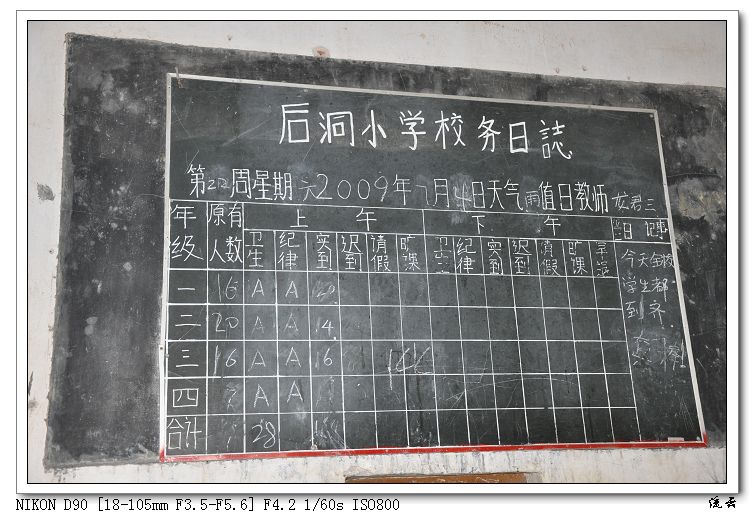 后洞小学校务日誌
第 周星期六2009年 月4日天气雨值日教师 君三
年级 原有人数 上午 下午 当日记事
卫生 纪律 实到 迟到 请假 旷课 卫生 纪律 实到 迟到 请假 旷课 早退
今天全校
学生都
到齐
一 16 A A
二 20 A A 14
三 16 A A 16
四 A A
合计 28
NIKON D90 [18-105mm F3.5-F5.6] F4.2 1/60s ISO800
流云